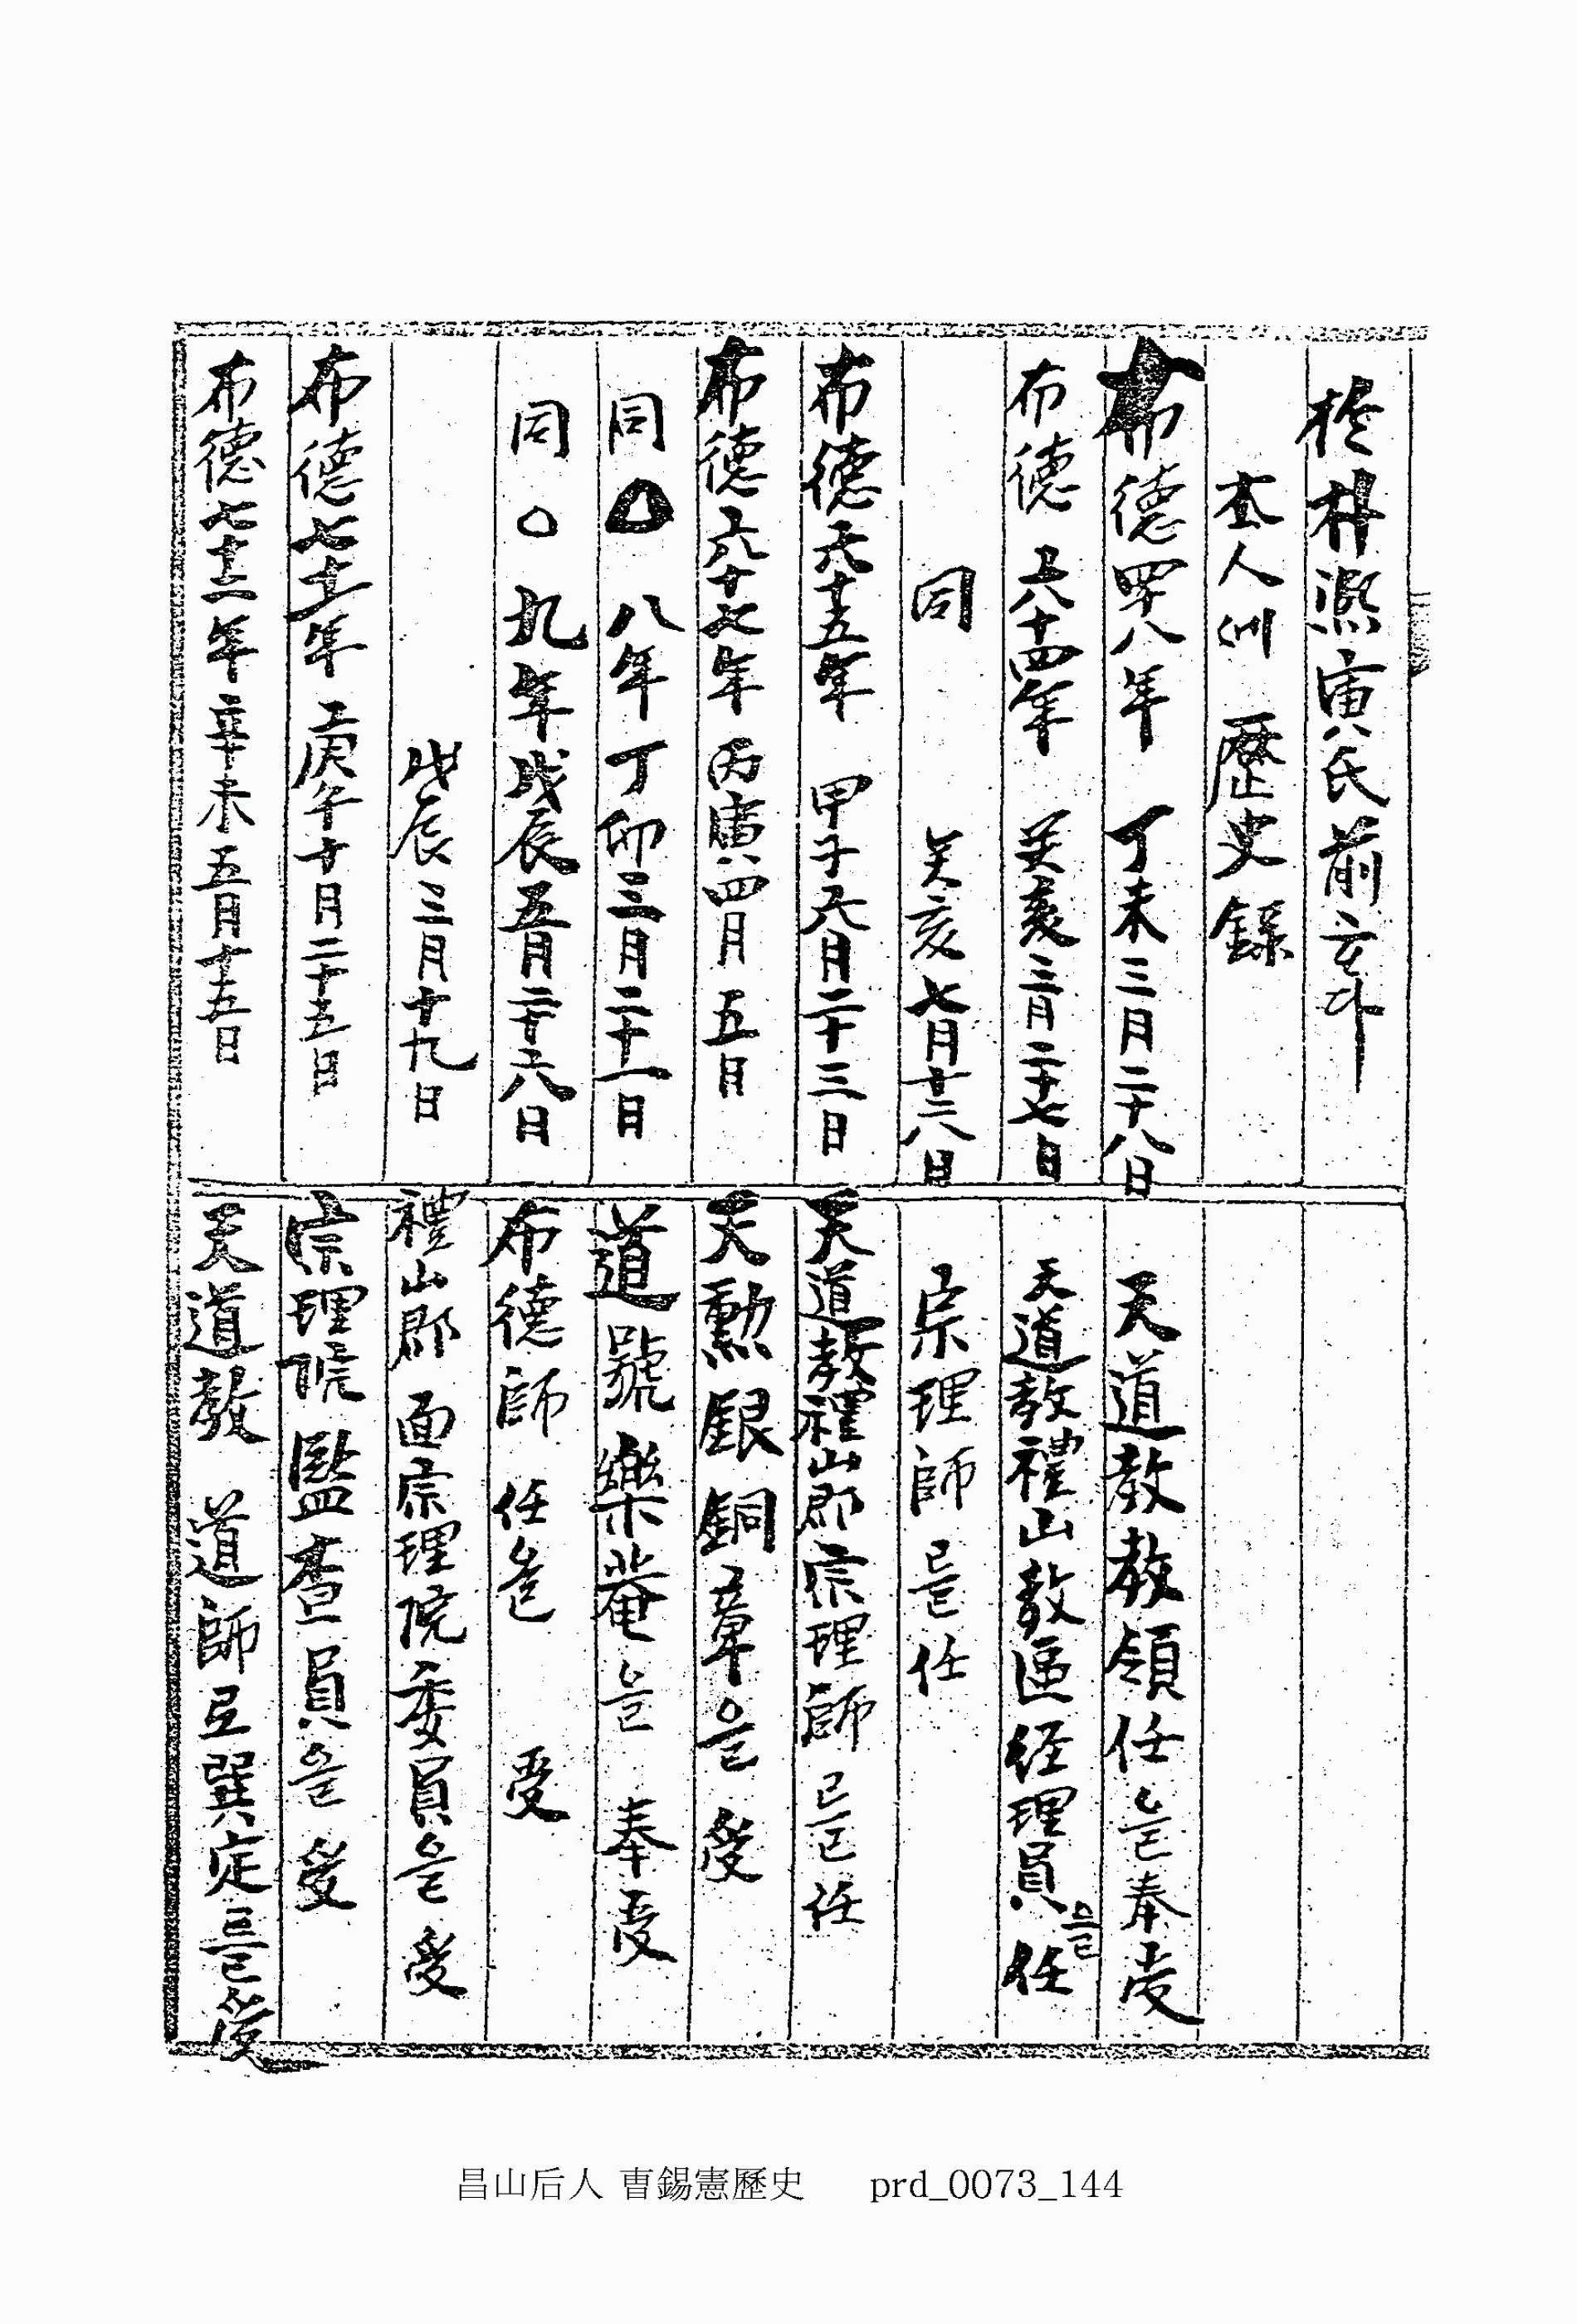 於朴熙寅氏前
本人 歷史錄
布德四十八年 丁未三月二十八日 天道敎敎領任을奉受
布德 六十四年 癸亥三月二十七日 天道敎禮山敎區経理員을任
同 癸亥七月十六日 宗理師로任
布德六十五年 甲子六月二十三日 天道敎禮山郡宗理師로任
布德六十七年 丙寅四月五日 天勳銀銅章을受
同〇八年 丁卯三月二十一日 道號樂菴을奉受
同〇九年 戊辰五月二十六日 布德師任을受
戊辰三月十九日 禮山郡面宗理院委員을受
布德七十一年 庚午十月二十五日 宗理院監査員을受
布德七十二年 辛未五月十五日 天道敎 道師로選定을受
昌山后人 曺錫憲歷史 prd_0073_144